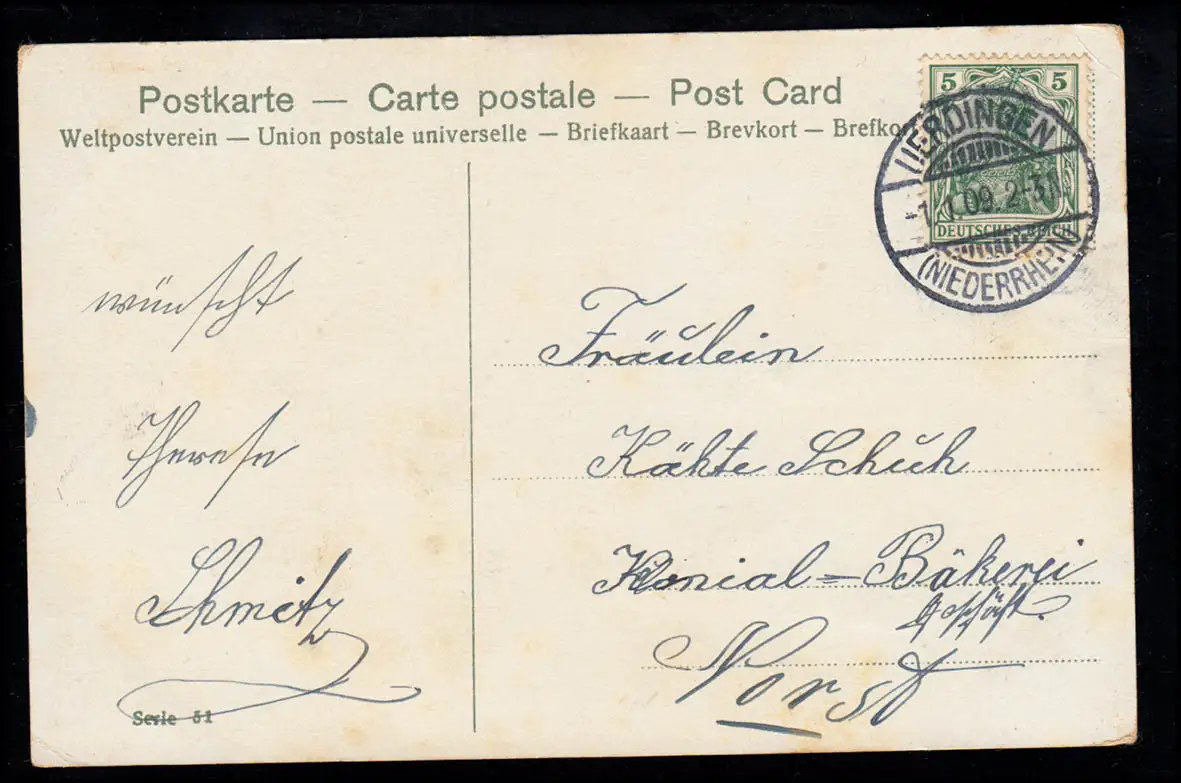 Postkarte — Carte postale — Post Card
Weltpostverein — Union postale universelle — Briefkaart — Brevkort — Brefko
5 5
DEUTSCHES REICH
UERDINGEN
1.1.09. 2-3N
(NIEDERRHEIN)
wünscht
Therese
Schmitz
Serie 51
Fräulein
Kähte Schuh
Konial = Bäkerei
Geschäft.
Vorst